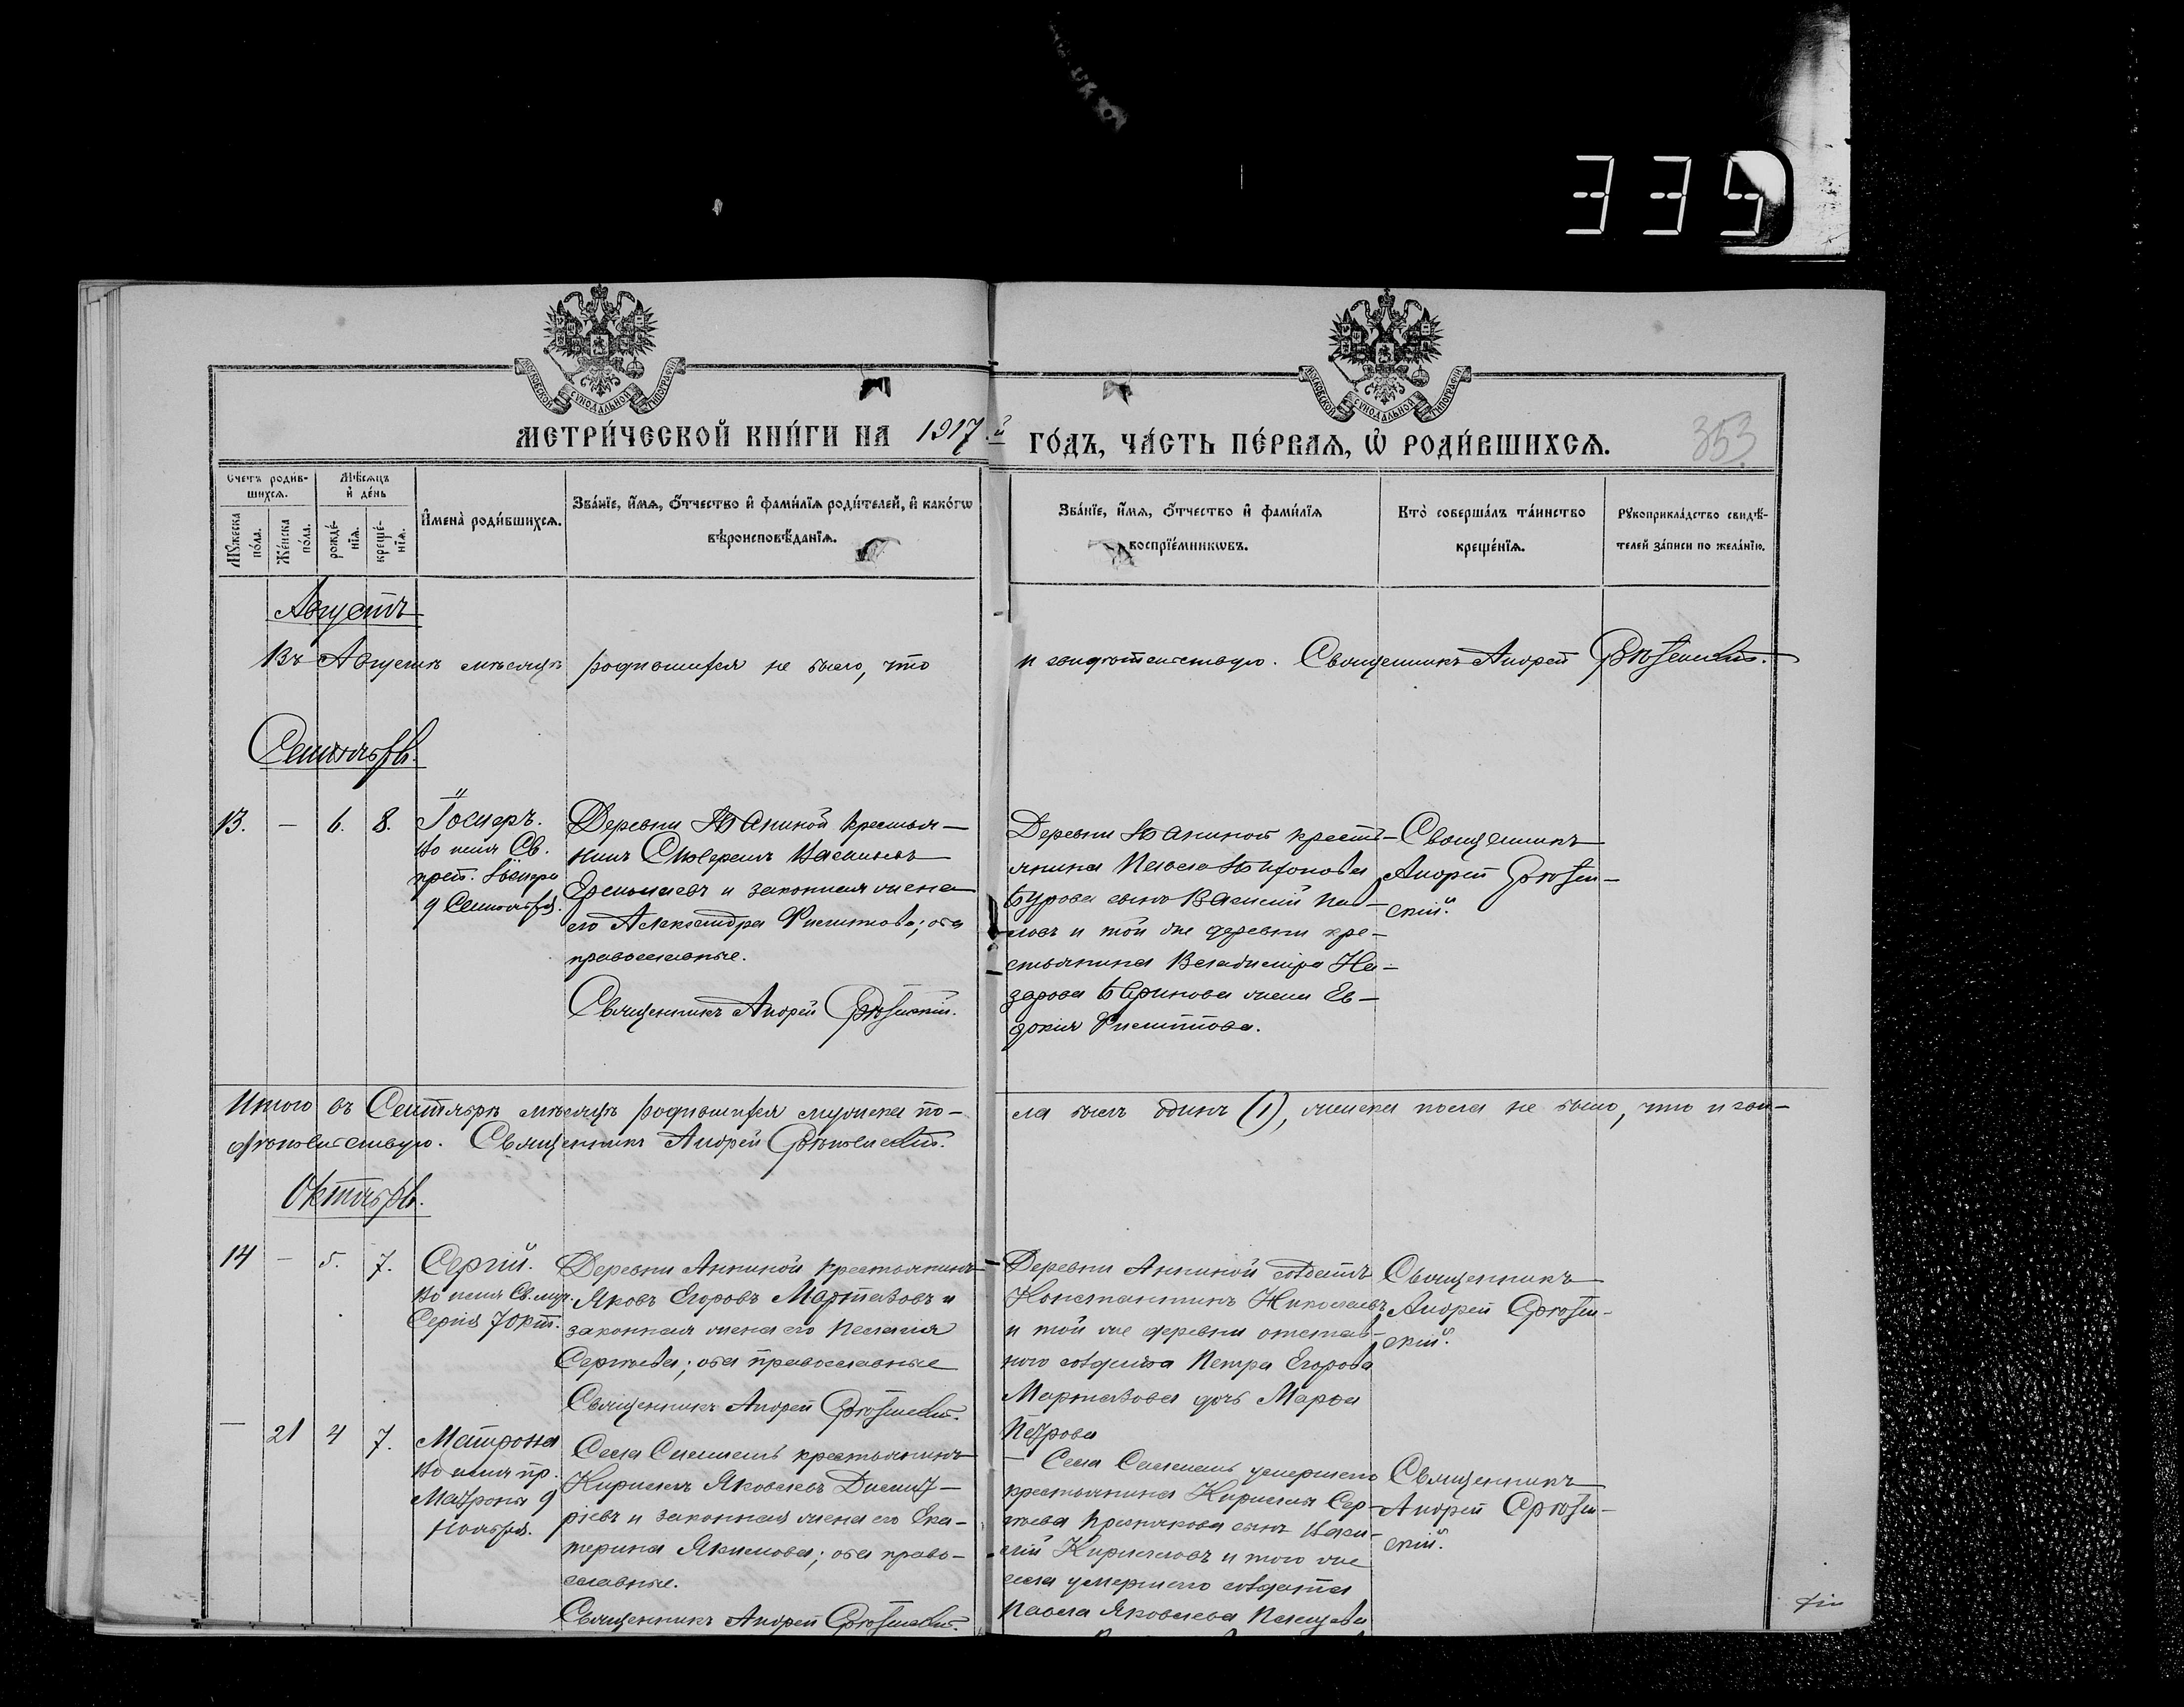 339
МОСКОВСКОЙ СУНОДАЛЬНОЙ ТИПОГРАФІИ
МОСКОВСКОЙ СУНОДАЛЬНОЙ ТИПОГРАФІИ
МЕТРИ́ЧЕСКОЙ КНИ́ГИ НА 1917.й ГО́ДЪ, ЧА́СТЬ ПЕ́РВАЯ, Ѡ РОДИ́ВШИХСЯ.
353
Счетъ родив-
шихсѧ.
Мѣсѧцъ
и де́нь
Мꙋжеска
по́ла.
Же́нска
по́ла.
рожде́-
нїѧ.
креще́-
нїѧ.
Имена̀ роди́вшихсѧ.
Зва́нїе, и́мѧ, ѻ́тчество и фами́лїѧ роди́телей, и како́гѡ
вѣроисповѣ́данїѧ.
Зва́нїе, и́мѧ, ѻ́тчество и фами́лїѧ
воспрїе́мникѡвъ.
Кто̀ соверша́лъ та́инство
креще́нїѧ.
Рꙋкоприкла́дство свидѣ́-
телей за́писи по жела́нїю.
Августъ
Въ Августѣ мѣсяцѣ родившихся не было, что и свидѣтельствую. Священникъ Андрей
Сентябрь.
13. – 6. 8.
Во имя Св.
9 Сентября.
Деревни крестья-
нинъ
и законная жена
его Александра Филиппова; оба
православные.
Священникъ Андрей
Деревни крестья-
янина Павла
Бурова сынъ Василій Пав-
ловъ и той же деревни кре-
стьянина Владиміра На-
зарова жена Ев-
докія Филиппова.
Священникъ
Андрей
скій.
Итого въ Сентябрѣ мѣсяцѣ родившихся мужска по-
ла былъ одинъ (1), женска пола не было, что и сви-
дѣтельствую. Священникъ Андрей
Октябрь.
14 – 5. 7.
Сергій.
Во имя Св. муч.
Сергія 7 Окт.
Деревни Аниной крестьянинъ
Яковъ Егоровъ и
законная жена его Пелагія
Сергѣева; оба православные
Священникъ Андрей
Деревни Аниной солдатъ
Константинъ Николаевъ
и той же деревни отстав-
ного солдата Петра Егорова
дочь Марѳа
Петрова
Священникъ
Андрей
скій.
– 21 4 7.
Матрона
Во имя пр.
Матроны 9
Ноября.
Села крестьянинъ
Кириллъ Яковлевъ Димит-
ріевъ и законная жена его Ека-
терина Якимова; оба право-
славные.
Священникъ Андрей
Села умершаго
крестьянина Кирилла Сер-
гѣева сынъ Васи-
лій Кирилловъ и того же
села умершаго солдата
Павла Яковлева
Священникъ
Андрей
скій.